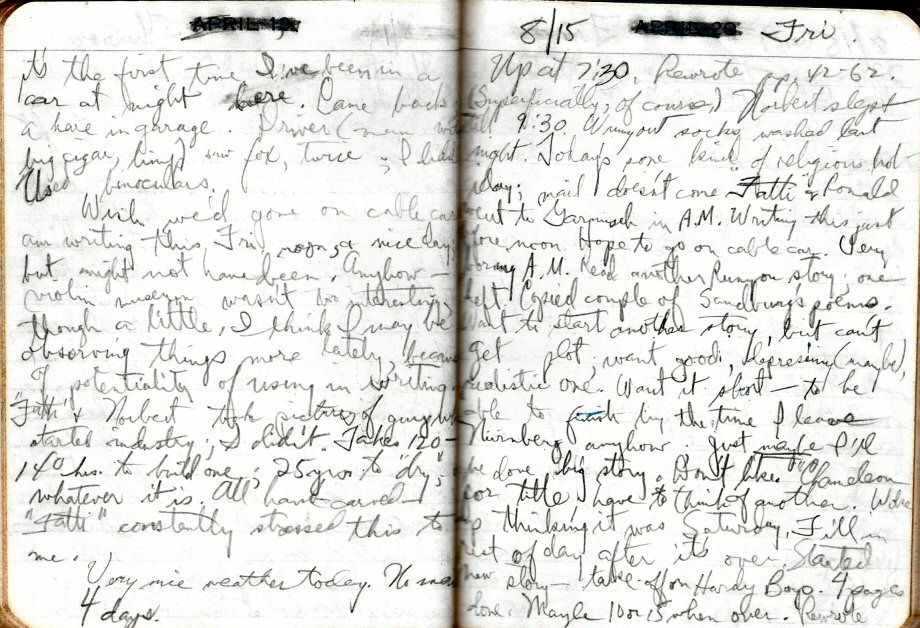 APRIL 19
it's the first time I've been in a
car at night here. Came back
a hare in garage. Driver (man
big cigar, saw fox, twice; I
used binoculars.
Wish we'd gone on cable car
am writing this, Fri. noon, a nice day,
but might not have been. Anyhow –
violin museum wasn't too interesting,
though a little, I think I may be
observing things more lately, because
of potentiality of using in writing.
"Fatti" & Norbert took pictures of guy who
started industry; I didn't. Takes 120–
140 hrs. to build one; 25 yrs. to "dry",
whatever it is. All hand-carved –
"Fatti" constantly stressed this to
me.
Very nice weather today. No
4 days.
8/15 APRIL 20 Fri.
Up at 7:30. Rewrote pp. 42-62.
(Superficially, of course,) Norbert slept
9:30. Wrung out socks washed last
night. Today's some kind of religious hol-
iday; mail doesn't come. "Fatti" & Ronald
went to Garmisch in A.M. Writing this just
before noon. Hope to go on cable car. Very
boring A.M. Read another Runyon story; one
left. Copied couple of Sandburg's poems.
Want to start another story, but can't
get plot; want good, depressing (maybe),
realistic one. Want it short – to be
able to finish by the time I leave
Nürnberg anyhow. Just maybe I'll
have done big story. Don't like "Chameleon"
for title; have to think of another. Woke
up thinking it was Saturday. I'll in
rest of day after it's over. Started
new story – take-off on Hardy Boys. 4 pages
done. Maybe 10 or 15 when over. Rewrote